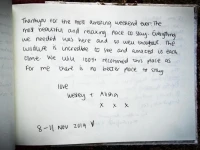 Thankyou for the most amazing weekend ever. The
most beautiful and relaxing place to stay. Everything
we needed was here and so well thought. The
wildlife is incredible to see and watched so
close. We will 100% recommend this place as
for me there is no better place to stay.
love
Wesley +
x x x
8-11 Nov 2019